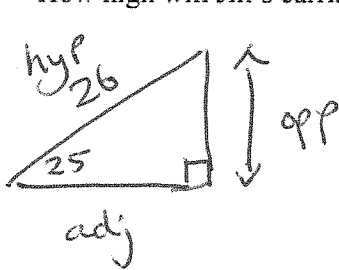 hyp
26
25
opp
adj